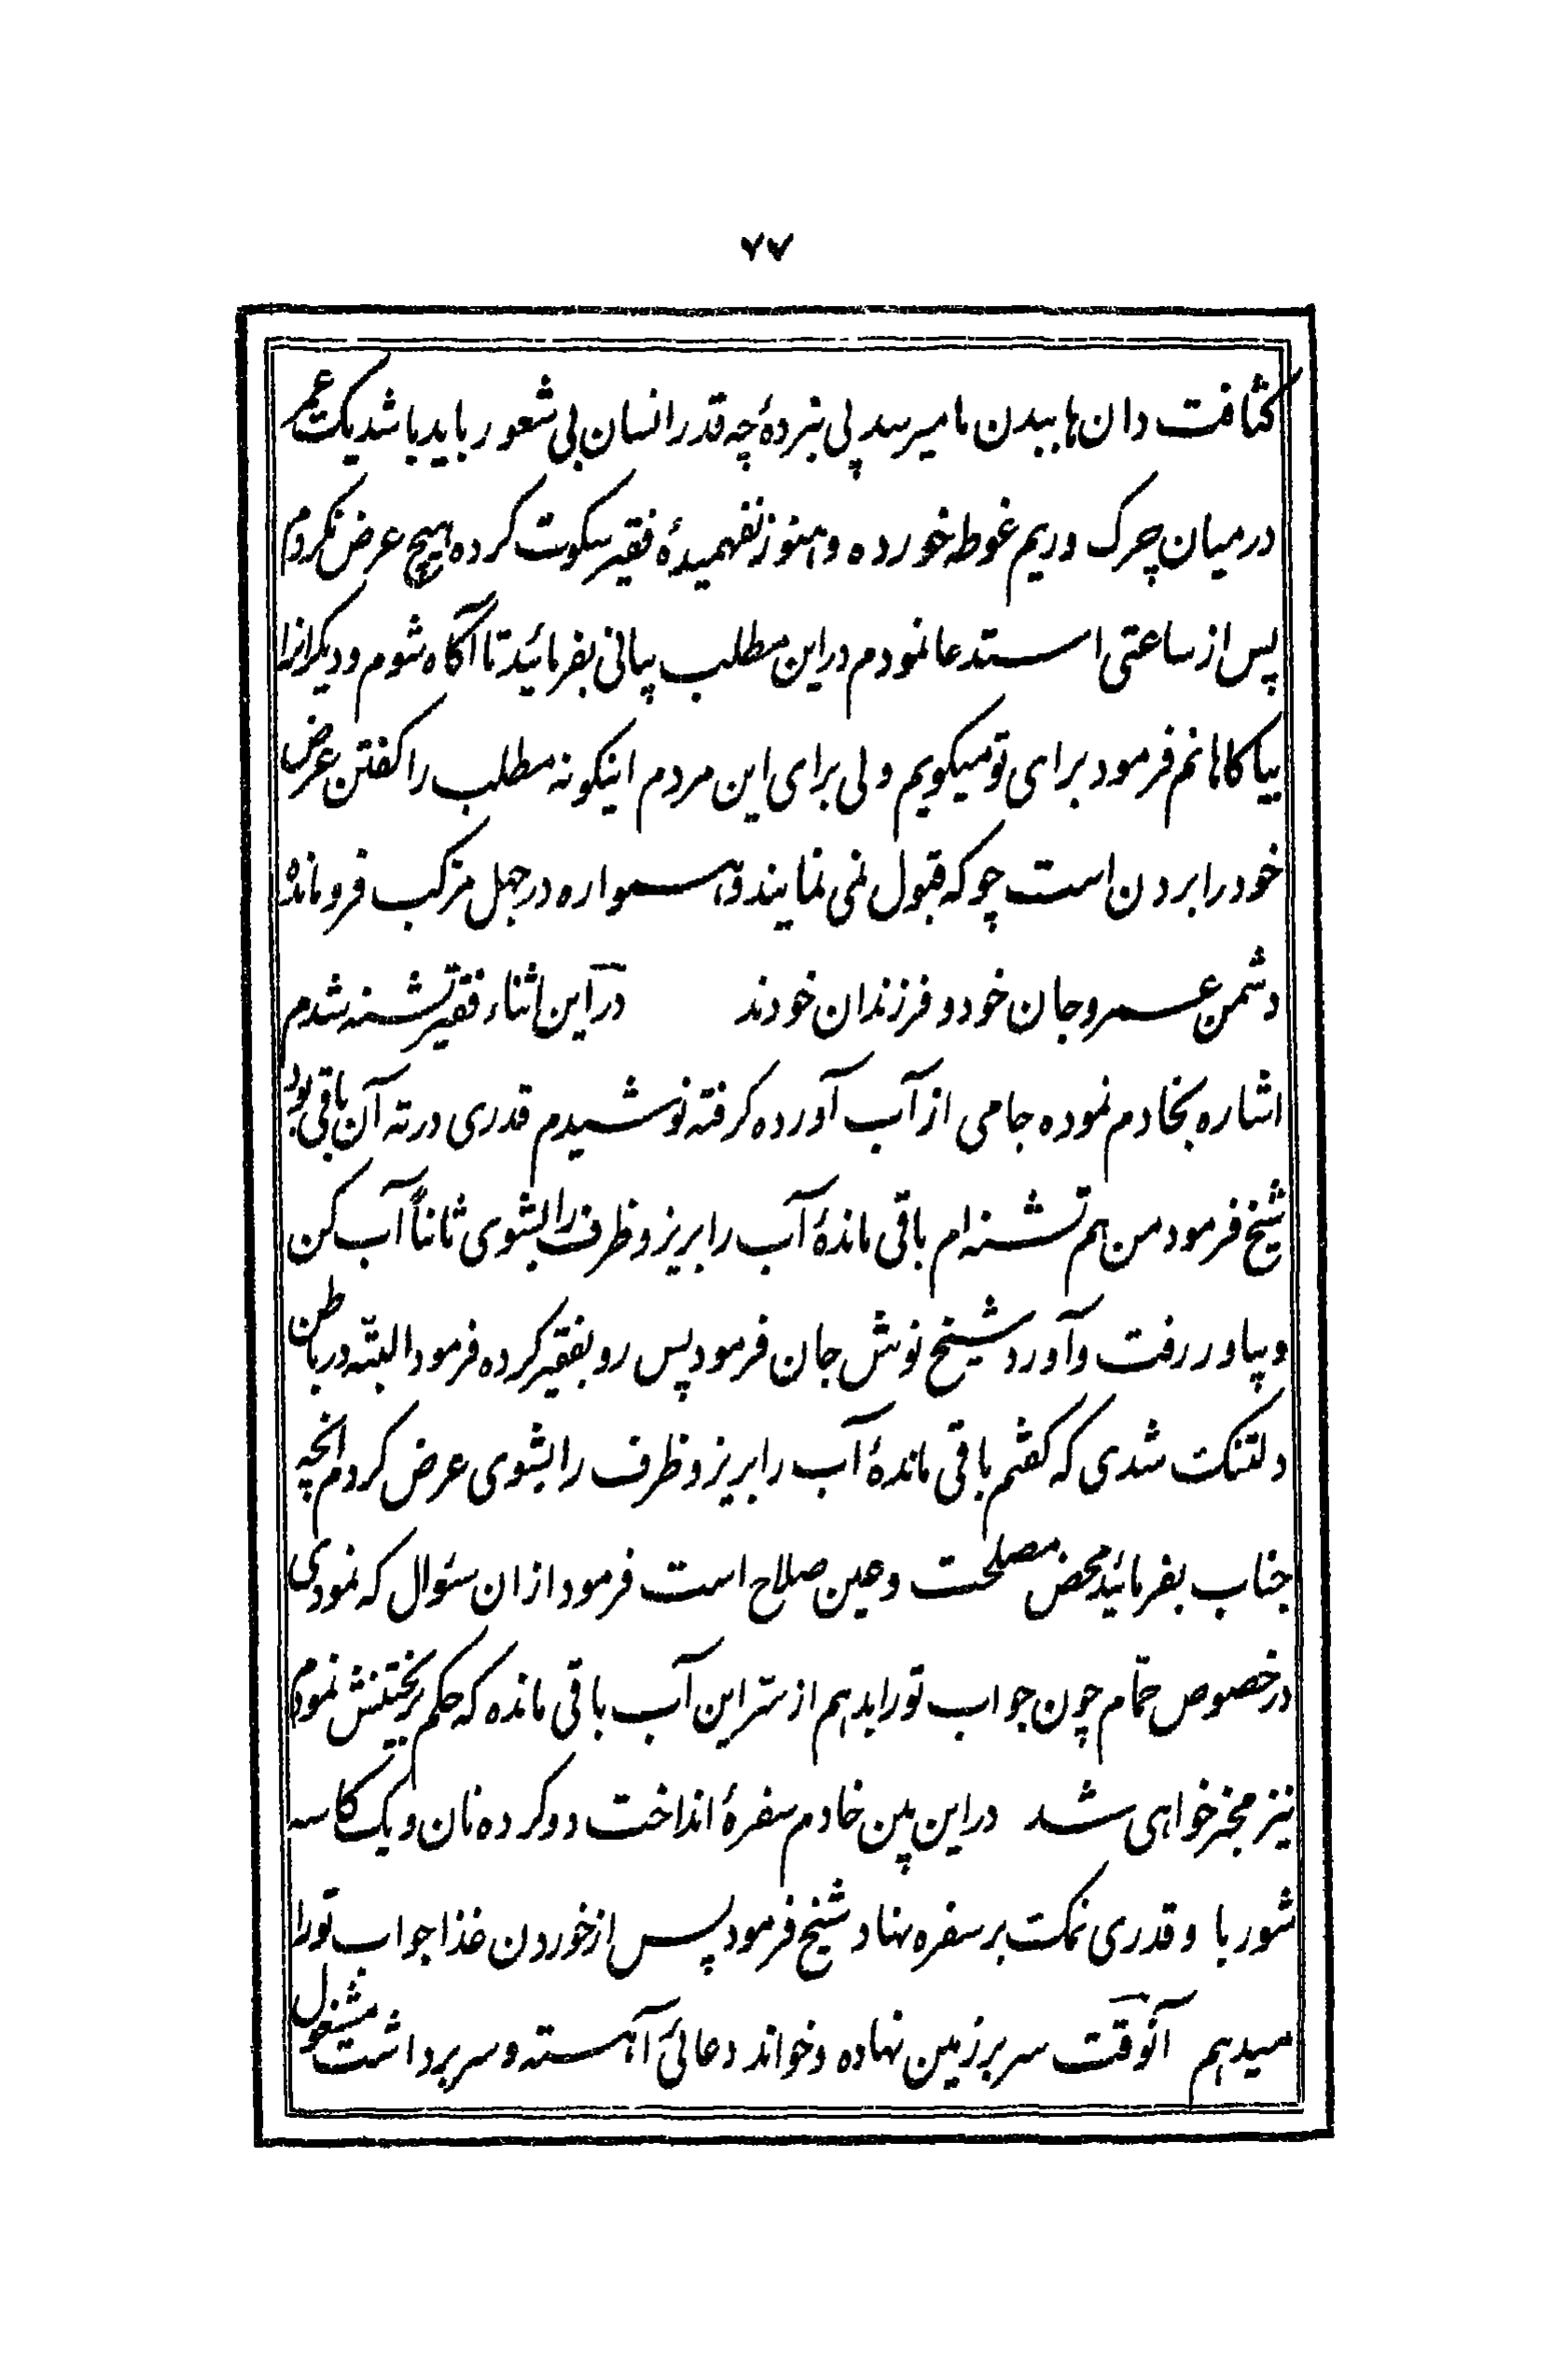 ۷۷
کثافت دان ها ببدن ما میرسد پی نبردهٔ چه قدر انسان بی شعور باید باشد یک عمر
در میان چرک و ریم غوطه خورده و هنوز نفهمیدهٔ فقیر سکوت کرده هیچ عرض نکردم
پس از ساعتی استدعا نمودم در این مطلب بیانی بفرمائید تا آگاه شوم و دیگرانرا
بیاگاهانم فرمود برای تو میگویم ولی برای این مردم اینگونه مطلب را گفتن عرض
خود را بردن است چو که قبول نمی نمایند و همواره در جهل مرکب فرومانده
دشمن عمر و جان خود و فرزندان خودند در این اثناء فقیر تشنه شدم
اشاره بخادم نموده جامی از آب آورده گرفته نوشیدم قدری در ته آن باقی بود
شیخ فرمود من هم تشنه ام باقی ماندهٔ آب را بریز و ظرف را بشوی ثانیاً آب کن
و بیاور رفت و آورد شیخ نوش جان فرمود پس رو بفقیر کرده فرمود البته در باطن
دلتنگ شدی که گفتم باقی ماندهٔ آب را بریز و ظرف را بشوی عرض کردم آنچه
جناب بفرمائید محض مصلحت و عین صلاح است فرمود از ان سئوال که نمودی
در خصوص حمّام چون جواب تو را بدهم از سرّ این آب باقی مانده که حکم بریختنش نمودم
نیز مخبر خواهی شد در این بین خادم سفرهٔ انداخت دو گرده نان و یک کاسه
شوربا و قدری نمک بر سفره نهاد شیخ فرمود پس از خوردن غذا جواب تو را
میدهم آنوقت سر بر زمین نهاده و خواند دعائی آهسته و سر برداشت مشغول